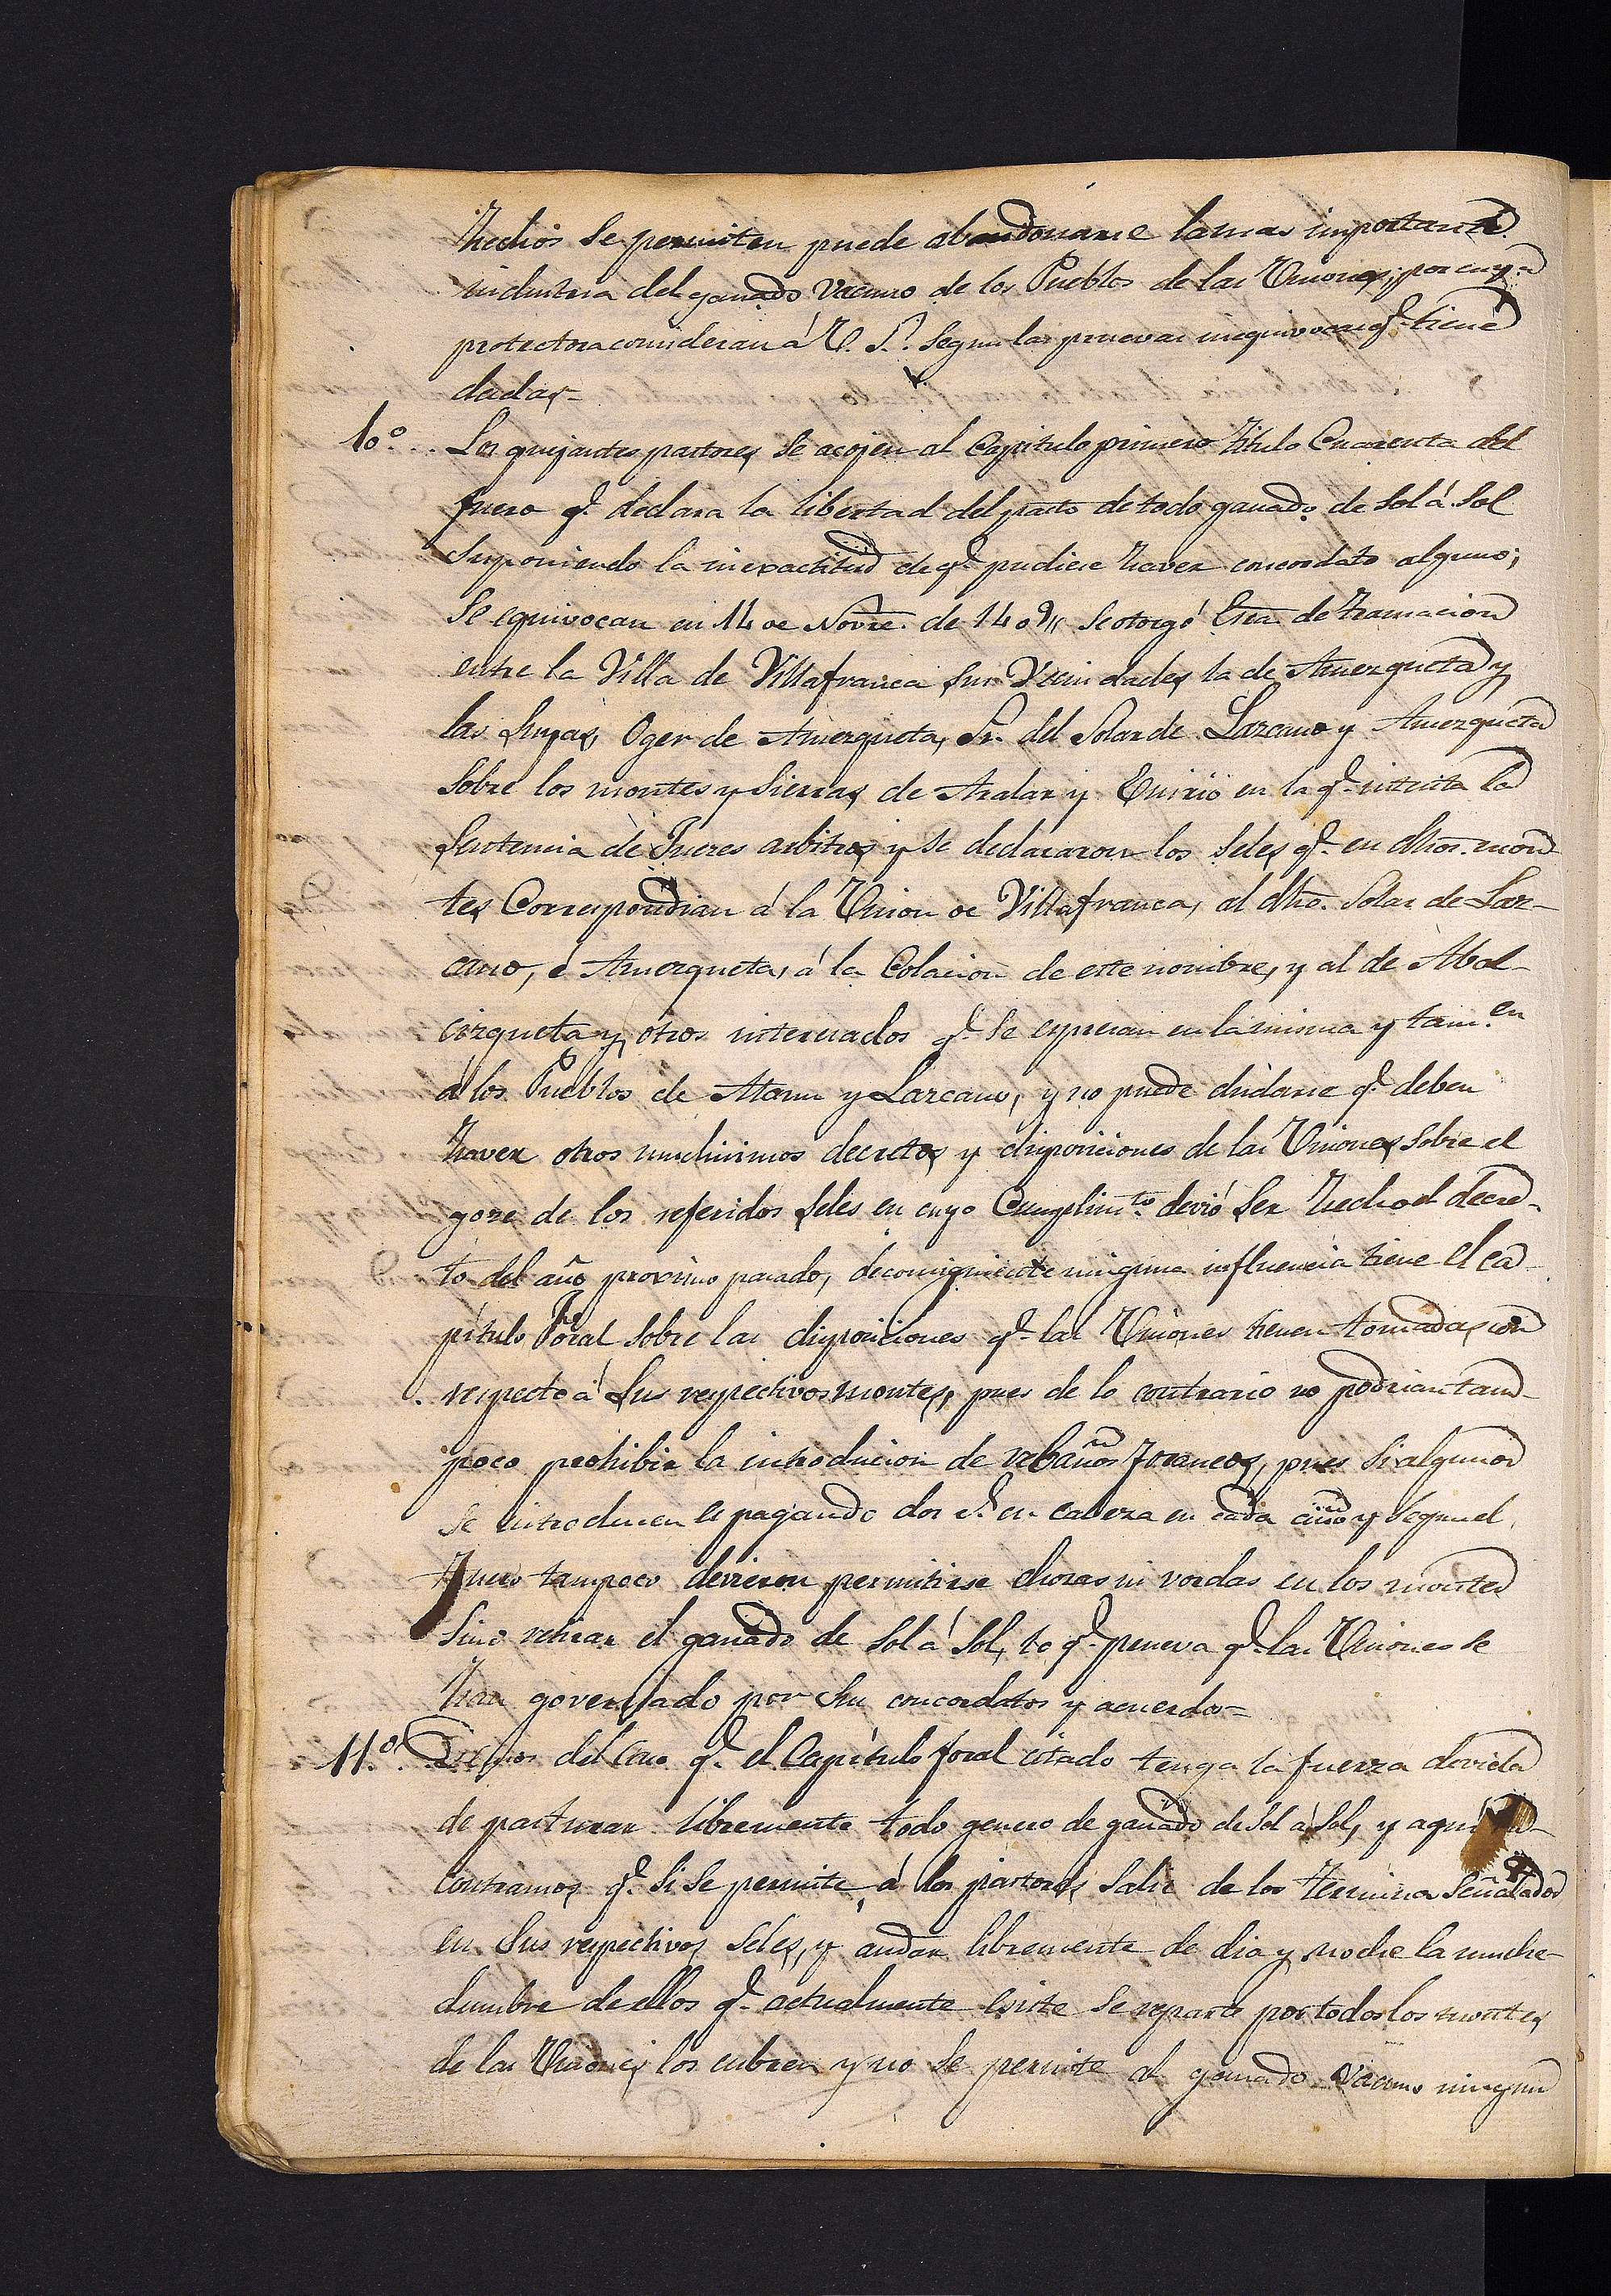 hechos se permiten puede abandonarse la mas importante
industria del ganado vacuno de los Pueblos de las Uniones, por cuya
protectora consideran á V. S.ª segun las pruevas inequivocas q.e tiene
dadas=
10.º.. Los quejantes pastores se acojen al Capitulo primero titulo Cuarenta del
fuero q.e declara la libertad del pasto de todo ganado de Sol á Sol
Suponiendo la inexactitud de q.e pudiese haver concordato alguno;
Se equivocan en 14 de Novre. de 1409 se otorgó Esra. de transacion
entre la Villa de Villafranca sus Vecindades, la de Amezqueta y
las suyas, Oger de Amezqueta, Sr. del Solar de Lazcano y Amezqueta
Sobre los montes y Sierras de Aralar y Enirio en la q.e la
Sentencia de Jueces arbitros, y se declararon los Seles q.e en dhos. mon-
tes Correspondian á la Union de Villafranca, al dho. Solar de Laz-
cano, é Amezqueta, á la Colacion de este nombre, y al de Abal-
cizqueta y otros interesados q.e se expresan en la misma y tam.en
á los Pueblos de Ataun y Lazcano, y no puede dudarse q.e deben
haver otros muchisimos decretos y disposiciones de las Uniones sobre el
goze de los referidos Seles en cuyo Cumplim.to devió ser hecho el decre-
to del año proximo pasado, de consiguiente ninguna influencia tiene el ca-
pitulo Foral sobre las disposiciones q.e las Uniones tienen tomadas con
respecto á sus respectivos montes, pues de lo contrario no podrian tam-
poco prohibir la introducion de rebaños foraneos, pues si algunos
se introducen es pagando dos r.s en cabeza en cada año y segun el
Fuero tampoco devieron permitirse chozas ni vordas en los montes
Sino retirar el ganado de Sol á Sol, lo q.e prueva q.e las Uniones se
han governado por su concordatos y acuerdos=
11.º. Demos del Caso q.e el Capitulo foral citado tenga la fuerza devida
de pasturar libremente todo genero de ganado de Sol á Sol, y aqui en-
contramos q.e si se permite á los pastores salir de los terminos Señalados
en sus respectivos Seles, y andar libremente de dia y noche la muche-
dumbre de ellos q.e actualmente existe se reparte por todos los montes
de las Uniones, los cubren y no se permite al ganado Vacuno ningun